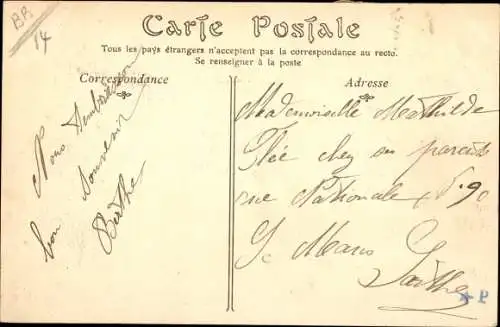 BR
14
Carte Postale
Tous les pays étrangers n'acceptent pas la correspondance au recto.
Se renseigner à la poste
Correspondance
Adresse
Nous
bon Souvenir
Berthe
Mademoiselle Mathilde
chez
parents
rue Nationale 90
Mans
Sarthe
P